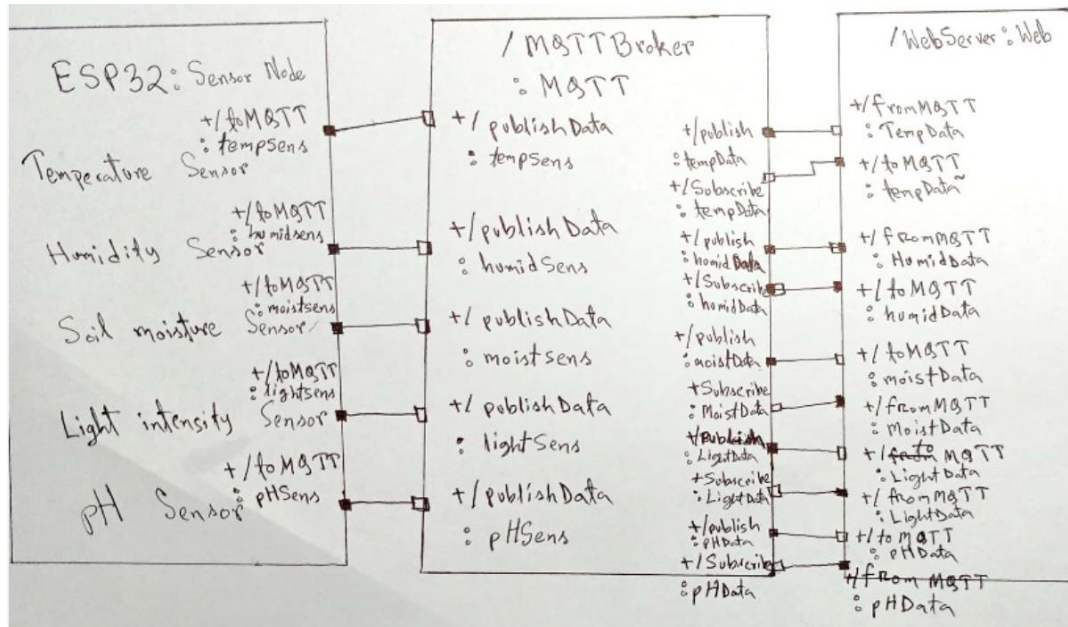 ESP32: Sensor Node
+/toMQTT
: tempSens
Temperature Sensor
+/toMQTT
: humidsens
Humidity Sensor
+/toMQTT
: moistsens
Soil moisture Sensor
+/toMQTT
: lightsens
Light intensity Sensor
+/toMQTT
: pHSens
pH Sensor
/MQTTBroker
: MQTT
+/publishData
: tempSens
+/publishData
: humidSens
+/publishData
: moistSens
+/publishData
: lightSens
+/publishData
: pHSens
+/publish
: tempData
+/Subscribe
: tempData
+/publish
: humidData
+/Subscribe
: humidData
+/publish
: moistData
+Subscribe
: MoistData
+/Publish
: LightData
+Subscribe
: LightData
+/publish
: pHData
+/Subscribe
: pHData
/WebServer: Web
+/fromMQTT
: TempData
+/toMQTT
: tempData
+/fromMQTT
: HumidData
+/toMQTT
: humidData
+/toMQTT
: moistData
+/fromMQTT
: MoistData
+/to MQTT
: LightData
+/fromMQTT
: LightData
+/toMQTT
: pHData
+/from MQTT
: pHData